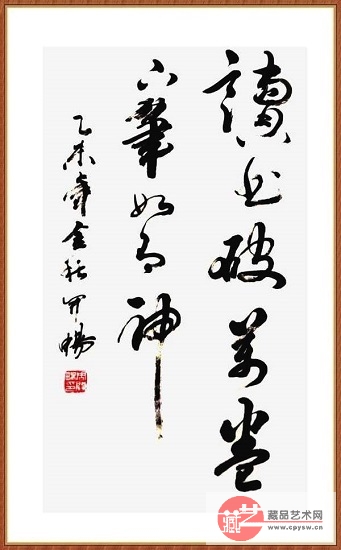 讀書破萬卷
下筆如有神
乙未年金秋
藏艺
藏品艺术网
www.cpysw.cn